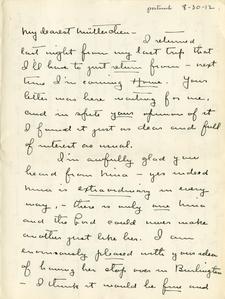 postmark 8-30-12
My dearest Mütterchen -
I returned
last night from my last trip that
I'll have to just return from - next
time I'm coming Home. Your
letter was here waiting for me,
and in spite your opinion of it
I found it just as dear and full
of interest as usual.
I'm awfully glad you
heard from Nina - yes indeed
Nina is extraordinary in every
way, - there is only one Nina
and the Lord could never make
another just like her. I am
enormously pleased with your idea
of having her stop over in Burlington
- I think it would be fine and